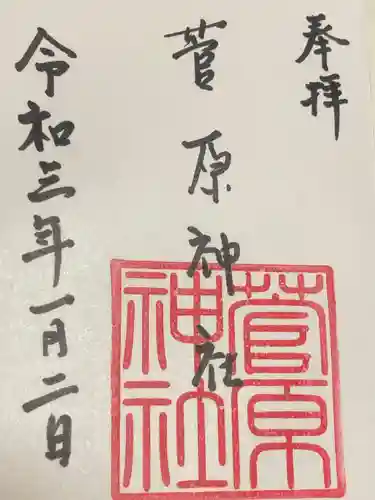 奉拝
菅原神社
令和三年一月二日
菅原
神社